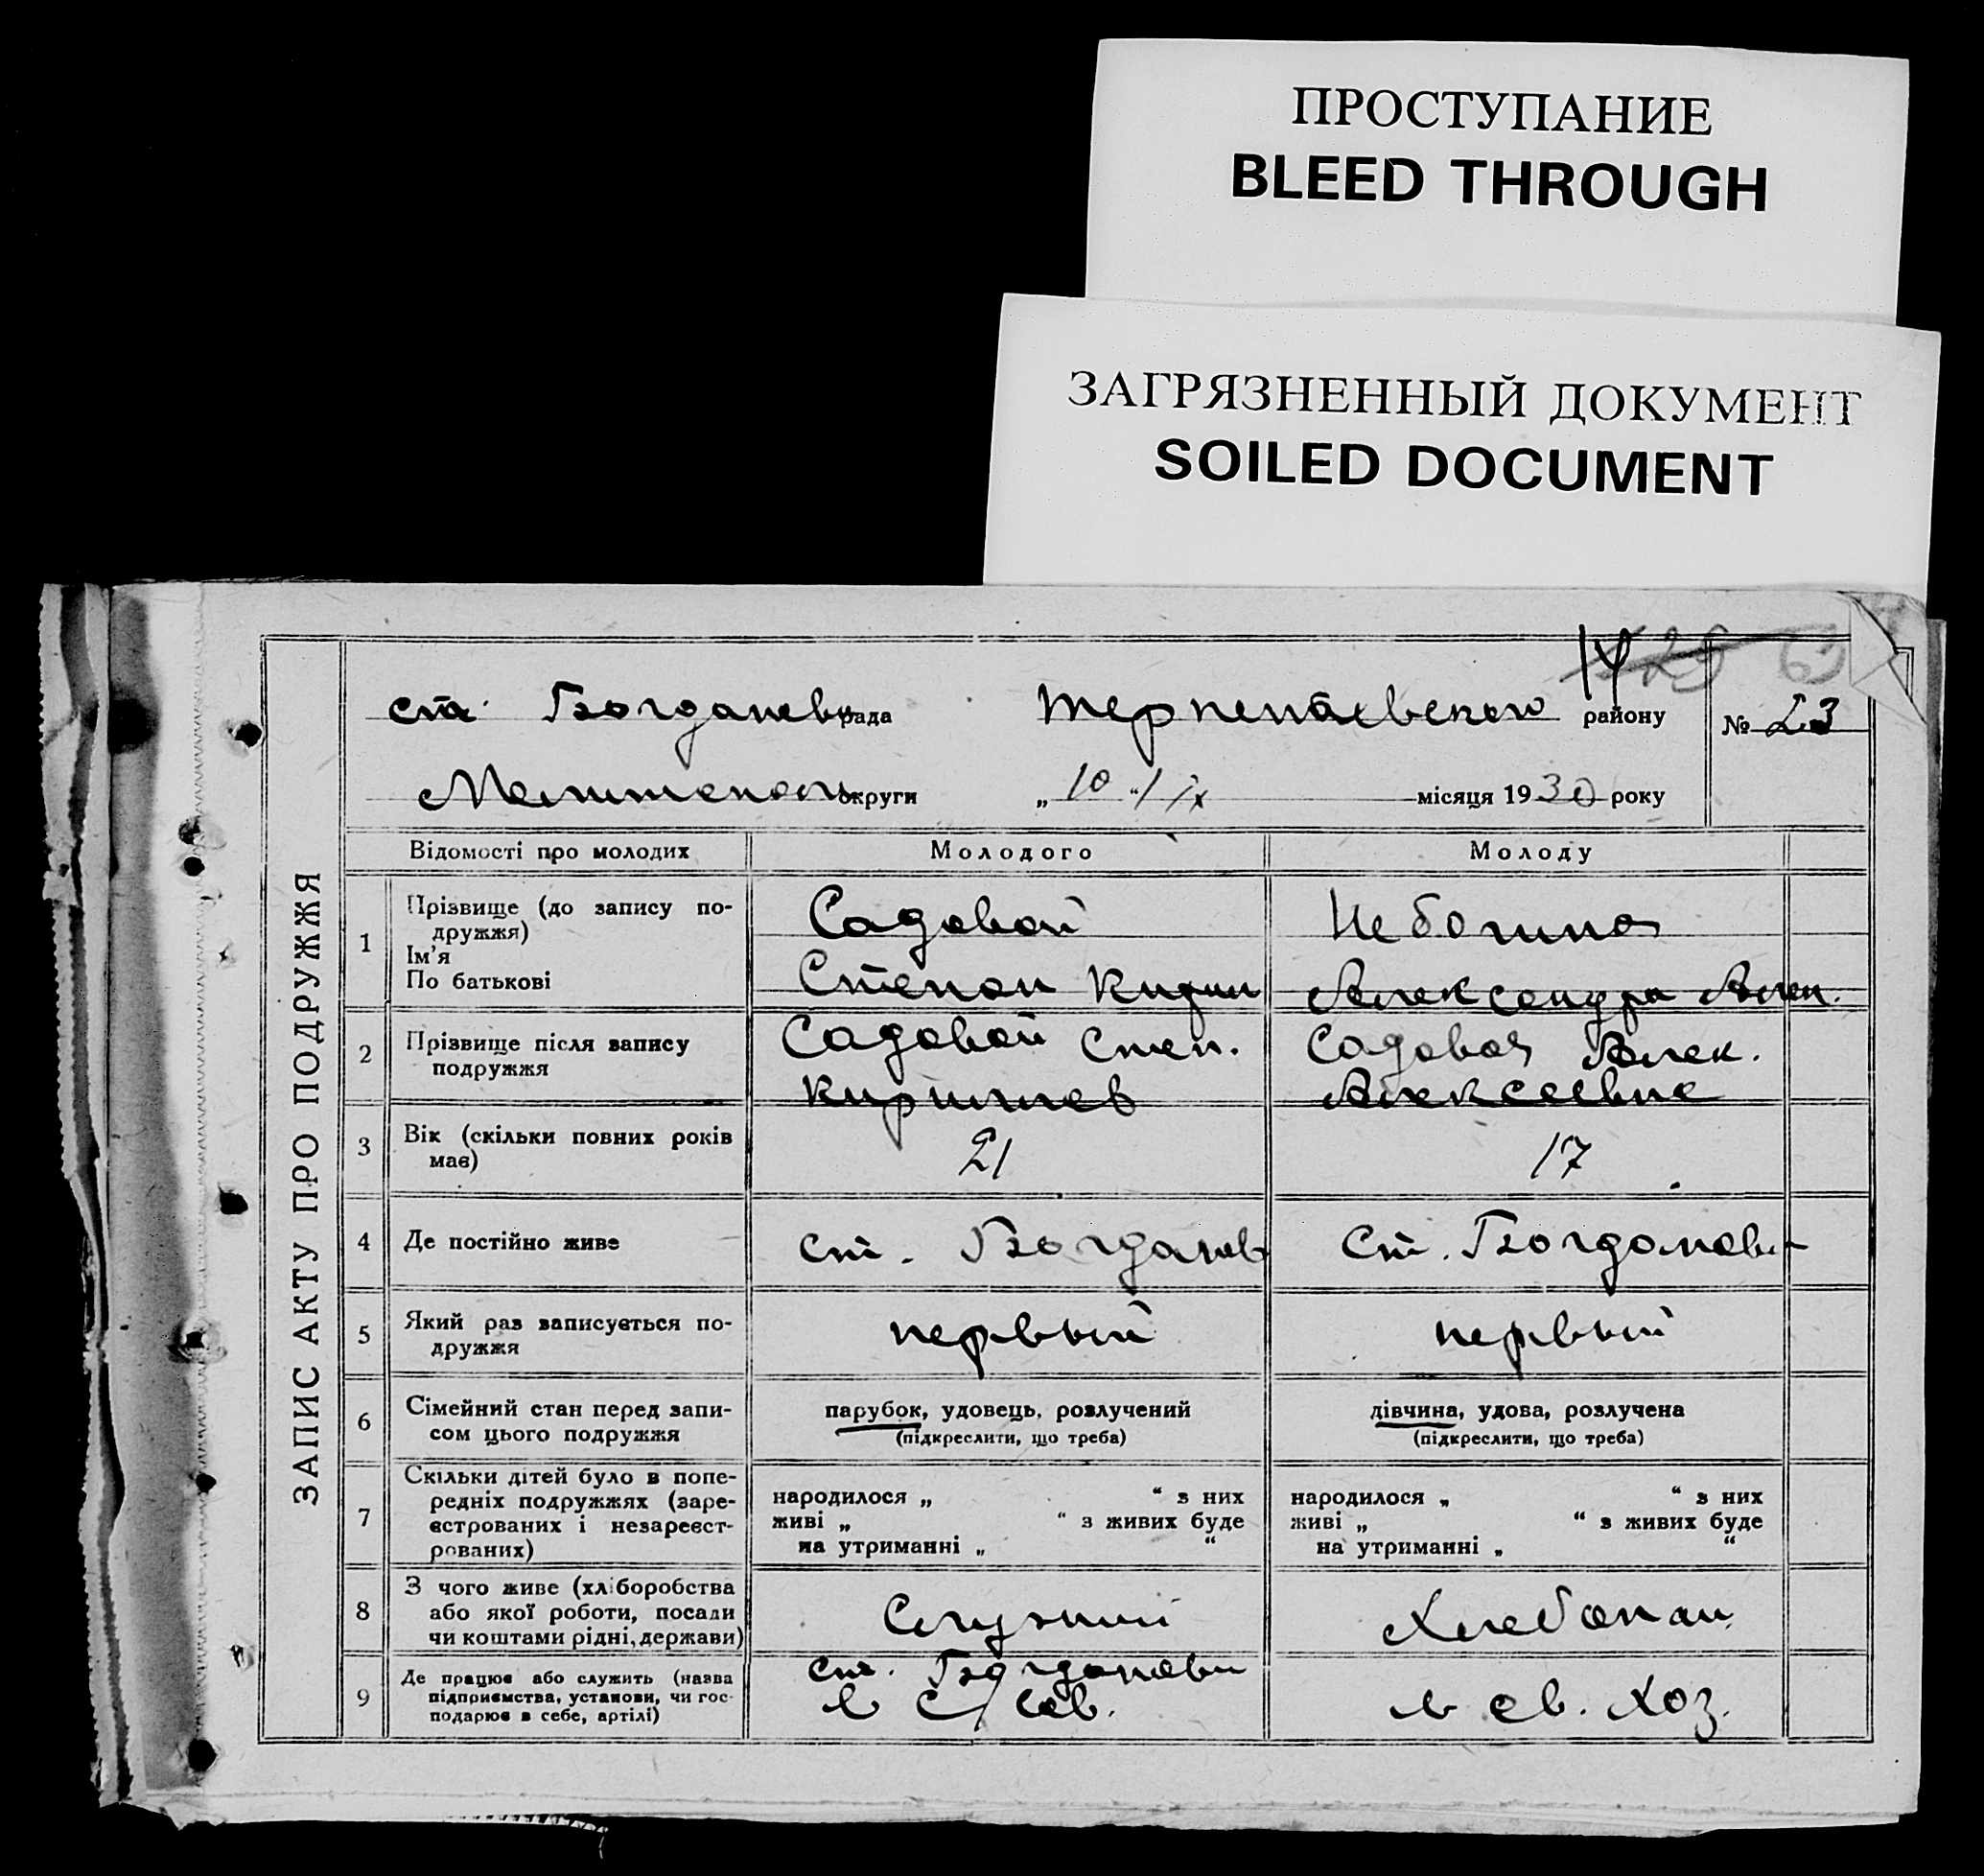 ПРОСТУПАНИЕ
BLEED THROUGH
ЗАГРЯЗНЕННЫЙ ДОКУМЕНТ
SOILED DOCUMENT
ЗАПИС АКТУ ПРО ПОДРУЖЖЯ
14
ст. Богдановка рада Терпеньевского району № 23
Мелитополь округи „ 10 “ / IX місяця 1930 року
Відомості про молодих Молодого Молоду
1 Прізвище (до запису по-
дружжя)
Ім’я
По батькові
Садовой
Степан Кирил
Александра Алек.
2 Прізвище після запису
подружжя
Садовой Степ.
Кирилов
Садовая Алек.
Алексеевна
3 Вік (скільки повних років
має)
21
17
4 Де постійно живе
ст. Богданов
ст. Богдановка
5 Який раз записується по-
дружжя
первый
первый
6 Сімейний стан перед запи-
сом цього подружжя
парубок, удовець, розлучений
(підкреслити, що треба)
дівчина, удова, розлучена
(підкреслити, що треба)
7 Скільки дітей було в попе-
редніх подружжях (заре-
єстрованих і незареєст-
рованих)
народилося „ “ з них
живі „ “ з живих буде
на утриманні „ “
народилося „ “ з них
живі „ “ з живих буде
на утриманні „ “
8 З чого живе (хліборобства
або якої роботи, посади
чи коштами рідні, держави)
Служит
Хлебопаш.
9 Де працює або служить (назва
підприємства, установи, чи гос-
подарює в себе, артілі)
ст. Богдановки
в С/сов.
в св. хоз.